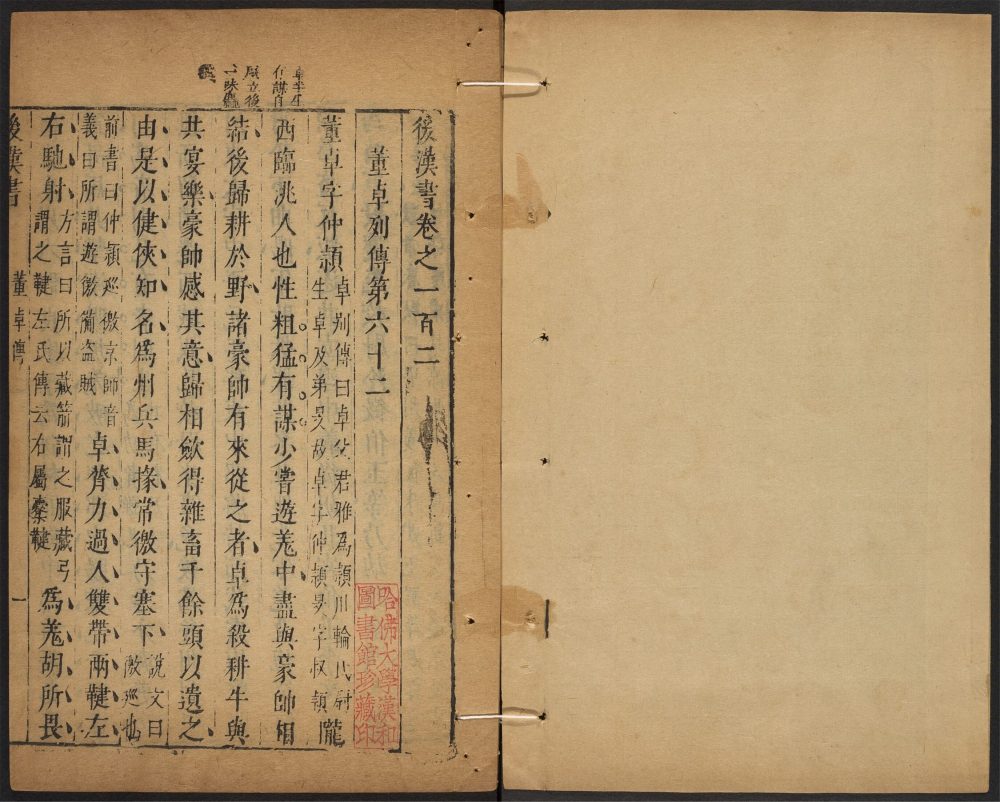 後漢書卷之一百二
董卓列傳第六十二
董卓字仲頴卓别傳曰卓父君雅爲頴川輪氏尉生卓及弟旻故卓字仲頴旻字叔頴隴
西臨洮人也性粗猛有謀少嘗遊羗中盡與豪帥相
結後歸耕於野諸豪帥有來從之者卓爲殺耕牛與
共宴樂豪帥感其意歸相斂得雜畜千餘頭以遺之
由是以健俠知名爲州兵馬掾常徼守塞下說文曰徼巡也
前書曰仲頴巡徼京師音義曰所謂遊徼徼盗賊卓膂力過人雙帶兩鞬左
右馳射方言曰所以藏箭謂之服藏弓謂之鞬左氏傳云右屬櫜鞬爲羗胡所畏
後漢書
董卓傳
一
哈佛大學漢和
圖書館珍藏印